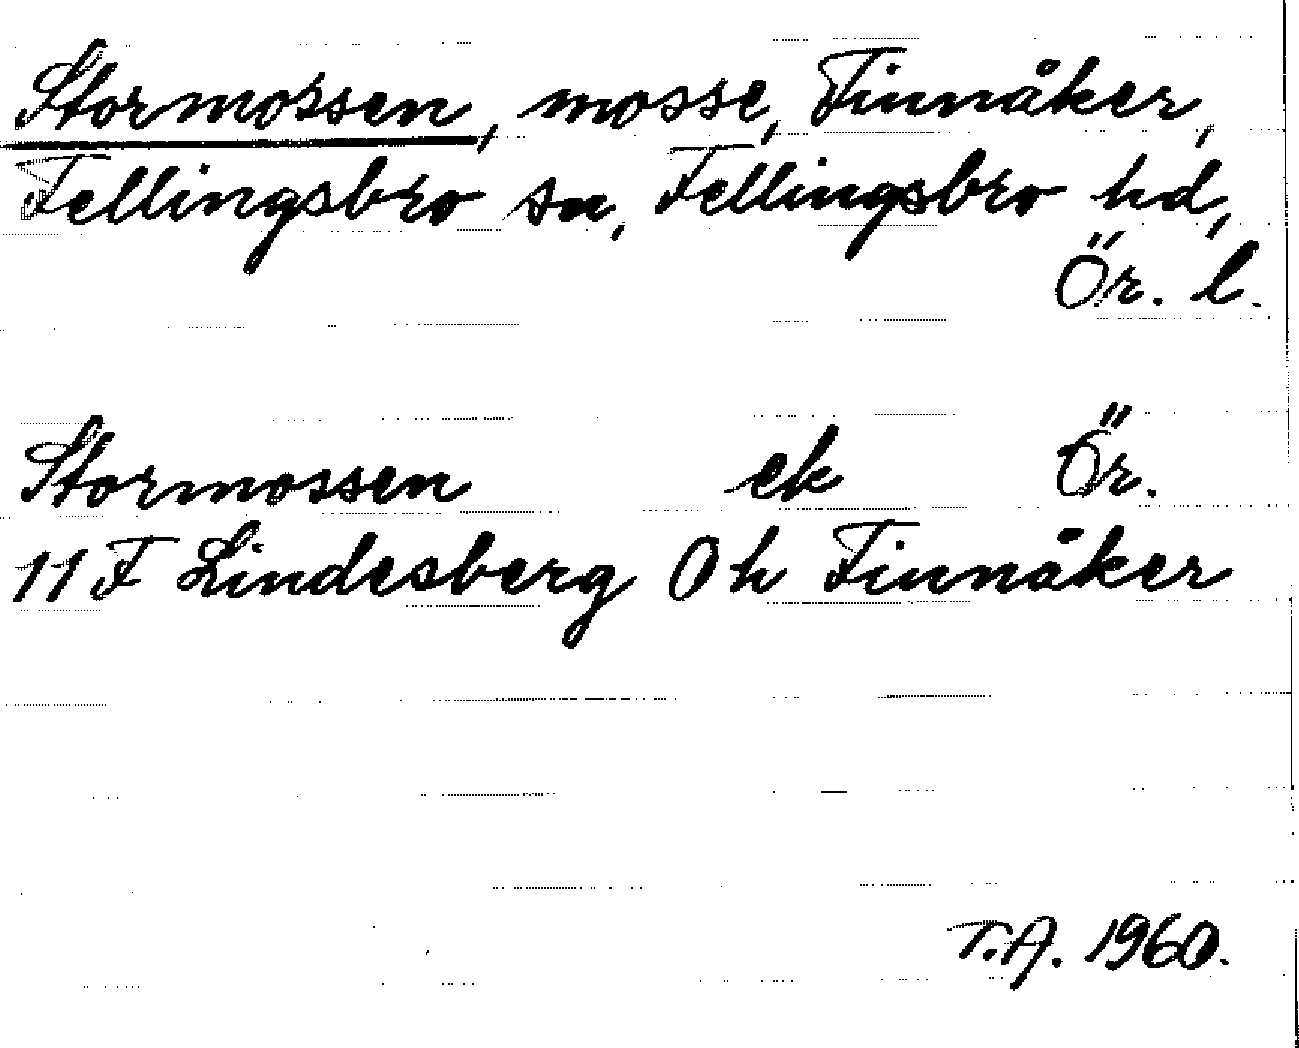 Stormossen, mosse, Finnåker,
Fellingsbro sn, Fellingsbro hd,
Ör. l.
Stormossen ek Ör.
11 F Lindesberg 0 h Finnåker
T.A. 1960.